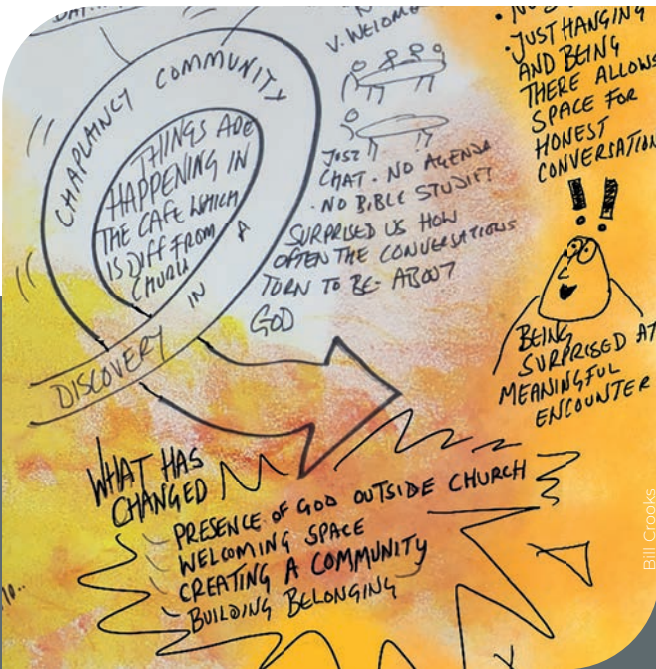 V. WELCOME
CHAPLAINCY COMMUNITY
THINGS ARE
HAPPENING IN
THE CAFE WHICH
IS DIFF FROM
CHURCH
DISCOVERY IN A
JUST
CHAT. NO AGENDA
. NO BIBLE STUDIES
SURPRISED US HOW
OFTEN THE CONVERSATIONS
TURN TO BE- ABOUT
GOD
• JUST HANGING
AND BEING
THERE ALLOWS
SPACE FOR
HONEST
CONVERSATION
!!
BEING
SURPRISED AT
MEANINGFUL
ENCOUNTER
WHAT HAS
CHANGED
PRESENCE OF GOD OUTSIDE CHURCH
WELCOMING SPACE
CREATING A COMMUNITY
BUILDING BELONGING
Bill Crooks